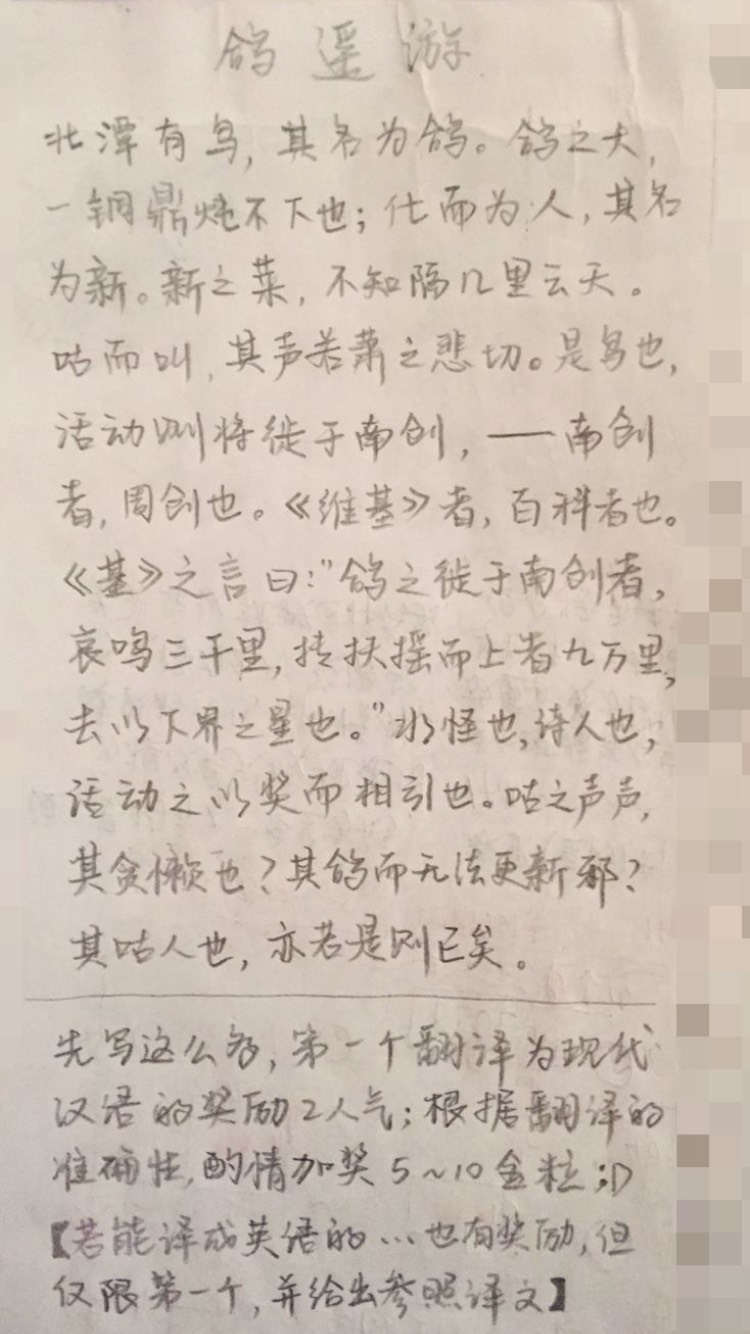 鸽遥游
北潭有鸟，其名为鸽。鸽之大，
一铜鼎炖不下也；化而为人，其名
为新。新之菜，不知隔几里云天。
咕而叫，其声若萧之悲切。是鸟也，
活动则将徙于南创，——南创
者，周创也。《维基》者，百科者也。
《基》之言曰：“鸽之徙于南创者，
哀鸣三千里，抟扶摇而上者九万里，
去以下界之星也。”水怪也，诗人也，
活动之以奖而相引也。咕之声声，
其贪懒也？其鸽而无法更新邪？
其咕人也，亦若是则已矣。
先写这么多，第一个翻译为现代
汉语的奖励2人气；根据翻译的
准确性，酌情加奖5~10金粒；D
【若能译成英语的…也有奖励，但
仅限第一个，并给出参照译文】